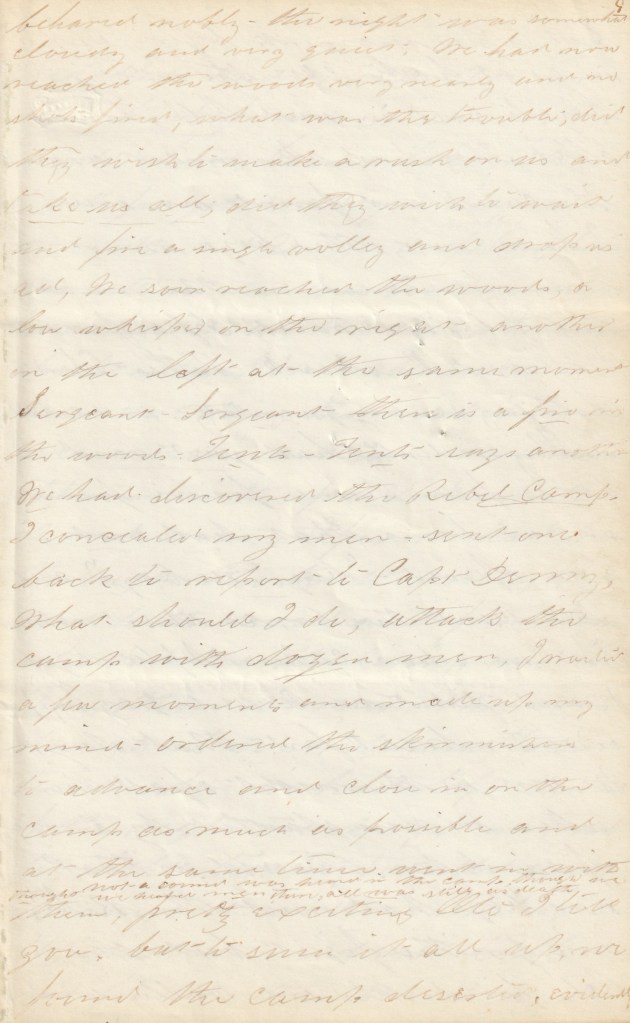 behaved nobly - the night was somewhat
cloudy and very quiet. We had now
reached the woods very nearly and no
shots fired, what was the trouble, did
they wish to make a rush on us and
take us all, did they wish to wait
and fire a single volley and drop us
all, We soon reached the woods, a
low whisper on the right another
on the left at the same moment
Sergeant - Sergeant there is a fire in
the woods - Tents - Tents says another
We had discovered the Rebel Camp.
I concealed my men - sent one
back to report to Capt Denny,
What should I do, attack the
camp with dozen men, I waited
a few moments and made up my
mind - ordered the skirmishers
to advance and close in on the
camp as much as possible and
at the same time went in with
though not a sound was heard in the camp though we
men then, all was still as death
them, pretty exciting I tell
you. but to sum it all up, we
found the camp deserted, evidently